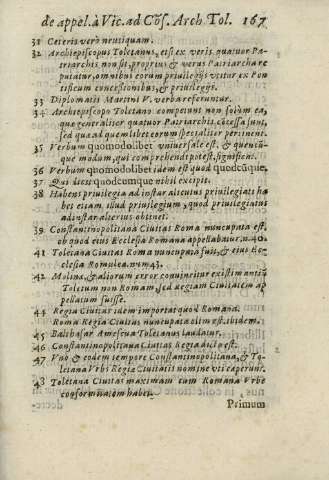 de appel. à Vic. ad Cõs. Arch. Tol. 167
31 Ceteris verò nequaquam.
32 Archiepiscopus Toletanus, etsi ex veris quatuor Pa-
triarchis non sit, proprius & verus Patriarcha re
putatur, omnibus eorum privilegijs vtitur ex Pon
tificum concessionibus, & privilegijs.
33 Diplomatis Martini V. verba referuntur.
34 Archiepiscopo Toletano competunt non solùm ea,
quæ generaliter quatuor Patriarchis cõcessa sunt,
sed quæ ad quemlibet eorum specialiter pertinent.
35 Verbum quomodolibet vniversale est, & quencũ-
que modum, qui comprehendi potest, significat.
36 Verbum quomodolibet idem est quod quodcũque.
37 Qui dicit quodcumque nihil excipit.
38 Habens privilegia ad instar alterius privilegiati ha
bet etiam illud privilegium, quod privilegiatus
ad instar alterius obtinet.
39 Constantinopolitana Civitas Roma nuncupata est,
ob quod eius Ecclesia Romana appellabatur, n.40.
41 Toletana Civitas Roma nuncupata fuit, & eius Ec-
clesia Romulea. num 43.
42 Molinæ, & aliorum error convincitur existim antiũ
Toletum non Romam, sed Regiam Civitatem ap
pellatum fuisse.
44 Regia Civitas idem importat quod Romana.
Roma Regia Civitas nuncupata olim est. ibidem.
45 Baltbasar Amescua Toletanus laudatur.
46 Constantinopolitana Civitas Regia dicta est.
47 Vno & eodem tempore Constantinopolitana, & To-
letana Vrbs Regiæ Civitatis nomine vti cæperunt.
48 Toletana Civitas maximam cum Romana Vrbe
conformitatem habet.
Primum